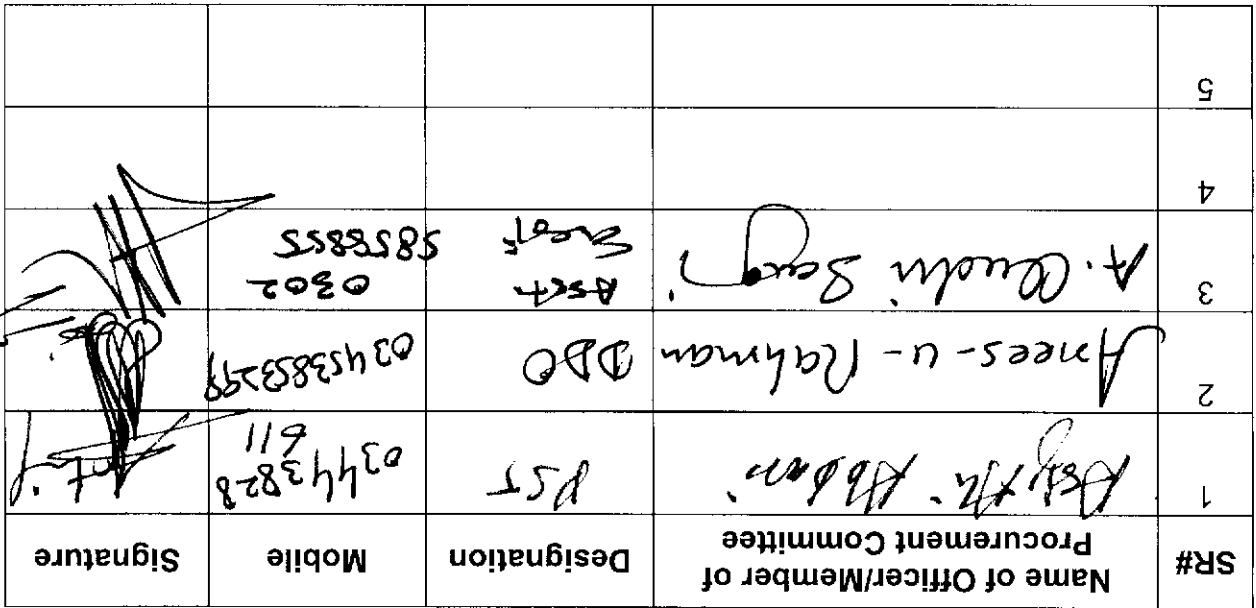 SR# Name of Officer/Member of Procurement Committee Designation Mobile Signature
1 PST 03443828
611
2 Anees-u-Rahman DDO 03453853299
3 A. Asstt 0302
5858855
4
5